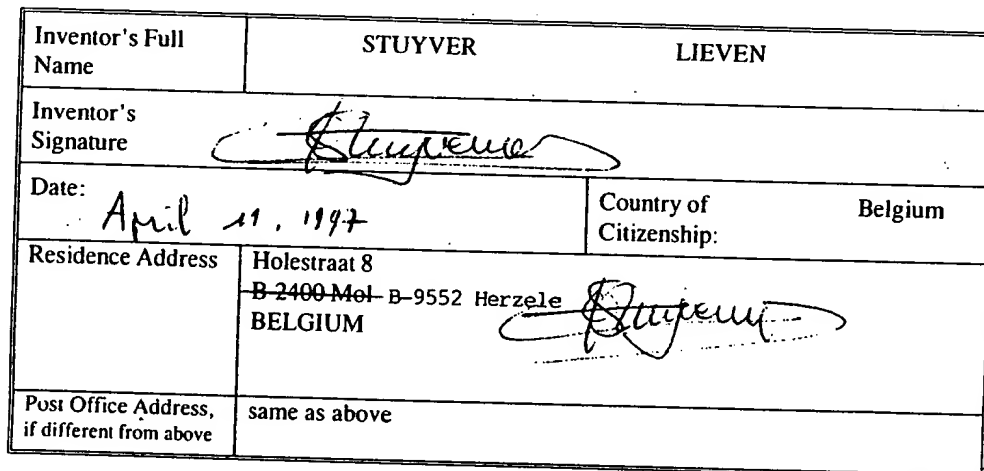 Inventor's Full Name
STUYVER LIEVEN
Inventor's Signature
Stuyver
Date:
April 11, 1997
Country of Citizenship:
Belgium
Residence Address
Holestraat 8
B-2400 Mol B-9552 Herzele
BELGIUM
Stuyver
Post Office Address,
if different from above
same as above